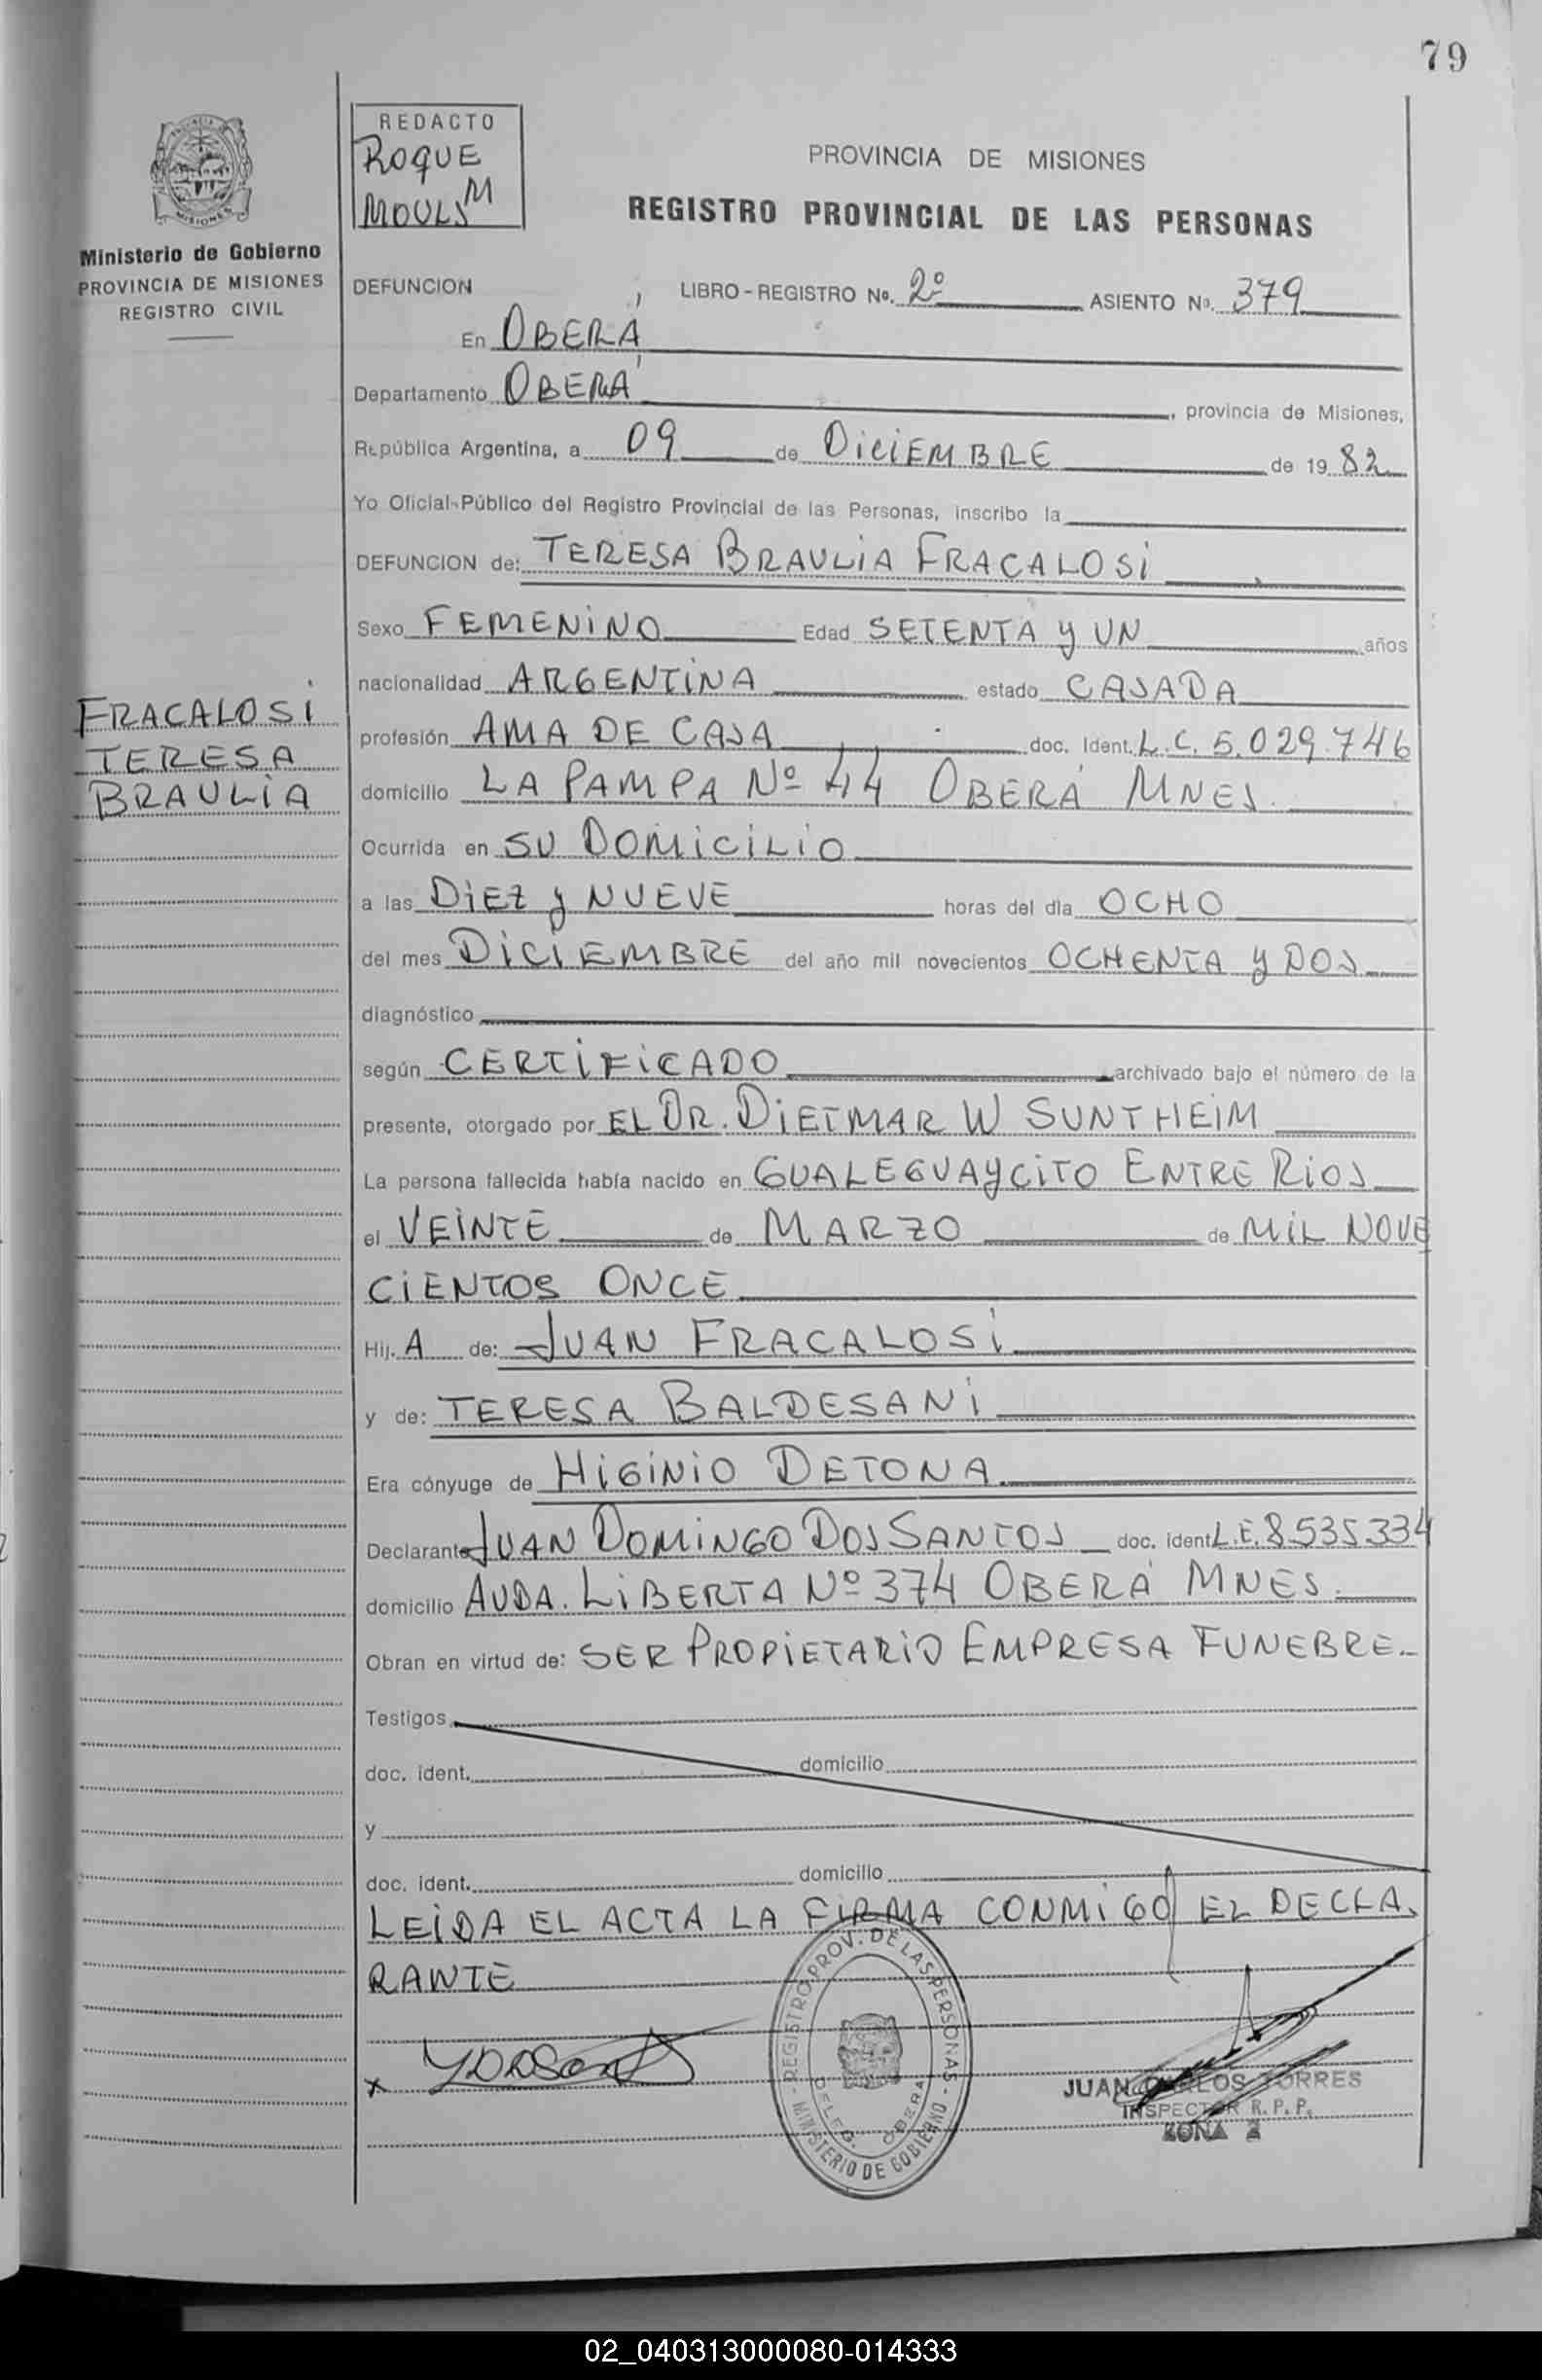 79
REDACTO
ROQUE
MOULS M
PROVINCIA DE MISIONES
REGISTRO PROVINCIAL DE LAS PERSONAS
MISIONES
Ministerio de Gobierno
PROVINCIA DE MISIONES
REGISTRO CIVIL
DEFUNCION LIBRO-REGISTRO Nº. 2º ASIENTO Nº. 379
En OBERÁ
Departamento OBERÁ, provincia de Misiones,
República Argentina, a 09 de DICIEMBRE de 1982
Yo Oficial-Público del Registro Provincial de las Personas, inscribo la
DEFUNCION de: TERESA BRAULIA FRACALOSI
Sexo FEMENINO Edad SETENTA Y UN años
nacionalidad ARGENTINA estado CASADA
FRACALOSI
TERESA
BRAULIA
profesión AMA DE CASA doc. Ident. L.C. 5.029.746
domicilio LA PAMPA Nº 44 OBERÁ MNES.
Ocurrida en SU DOMICILIO
a las DIEZ Y NUEVE horas del día OCHO
del mes DICIEMBRE del año mil novecientos OCHENTA Y DOS
diagnóstico
según CERTIFICADO archivado bajo el número de la
presente, otorgado por EL DR. DIETMAR W SUNTHEIM
La persona fallecida había nacido en GUALEGUAYCITO ENTRE RIOS
el VEINTE de MARZO de MIL NOVE
CIENTOS ONCE
Hij. A de: JUAN FRACALOSI
y de: TERESA BALDESANI
Era cónyuge de HIGINIO DETONA
Declarante JUAN DOMINGO DOS SANTOS doc. ident L.E. 8535334
domicilio AVDA. LIBERTA Nº 374 OBERÁ MNES.
Obran en virtud de: SER PROPIETARIO EMPRESA FUNEBRE.
Testigos
doc. ident. domicilio
y
doc. ident. domicilio
LEIDA EL ACTA LA FIRMA CONMIGO EL DECLA
RANTE
REGISTRO PROV. DE LAS PERSONAS - MINISTERIO DE GOBIERNO -
DELEG. OBERA
x
JUAN CARLOS TORRES
INSPECTOR R. P. P.
ZONA 2
02_040313000080-014333